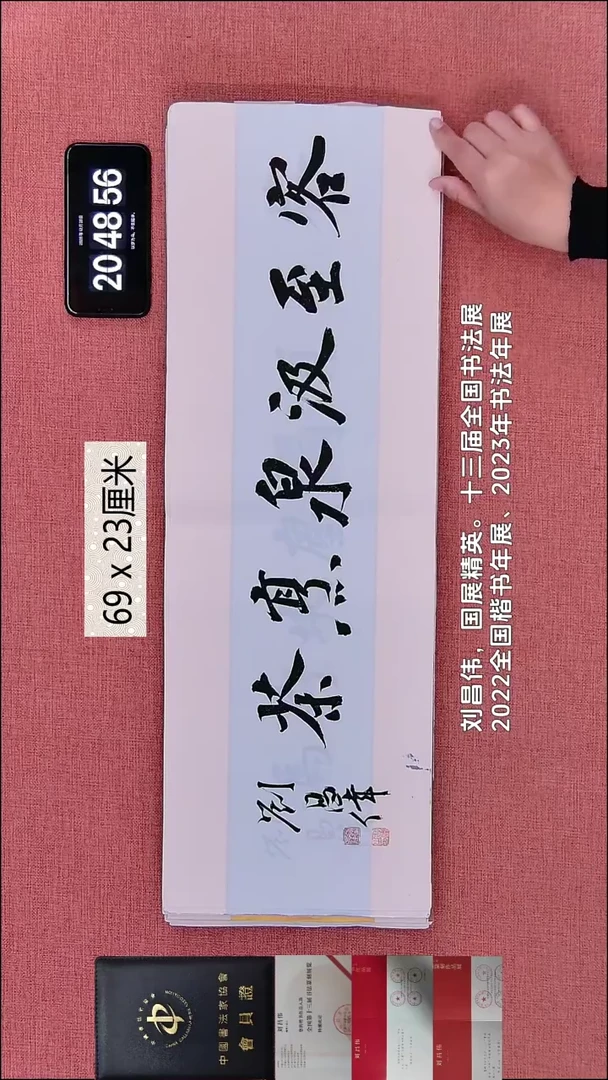 客至汲泉烹茶
劉昌偉
20 48 56
69 x 23厘米
刘昌伟，国展精英。十三届全国书法展
2022全国楷书年展、2023年书法年展
中國書法家協會
會員證